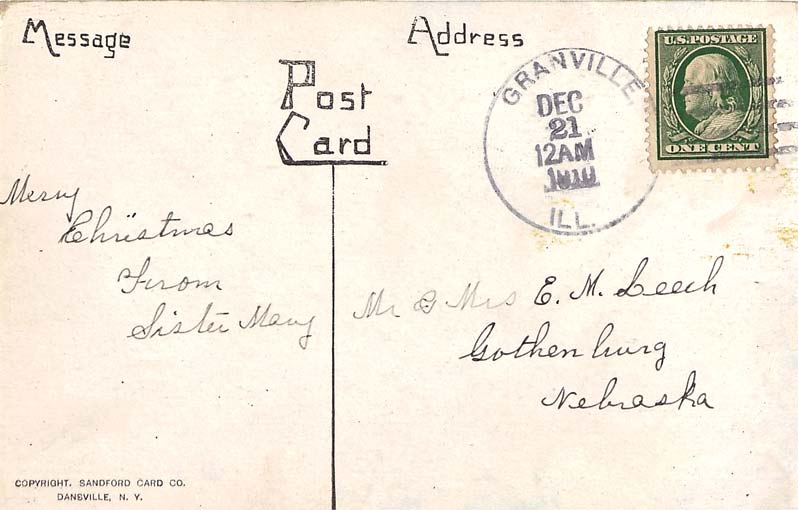 Message
Address
Post
Card
U.S. POSTAGE
ONE CENT
GRANVILLE
DEC
21
12AM
1910
ILL.
Merry
Christmas
From
Sister Mary
Mr & Mrs E. M. Leech
Gothenburg
Nebraska
COPYRIGHT, SANDFORD CARD CO.
DANSVILLE, N. Y.